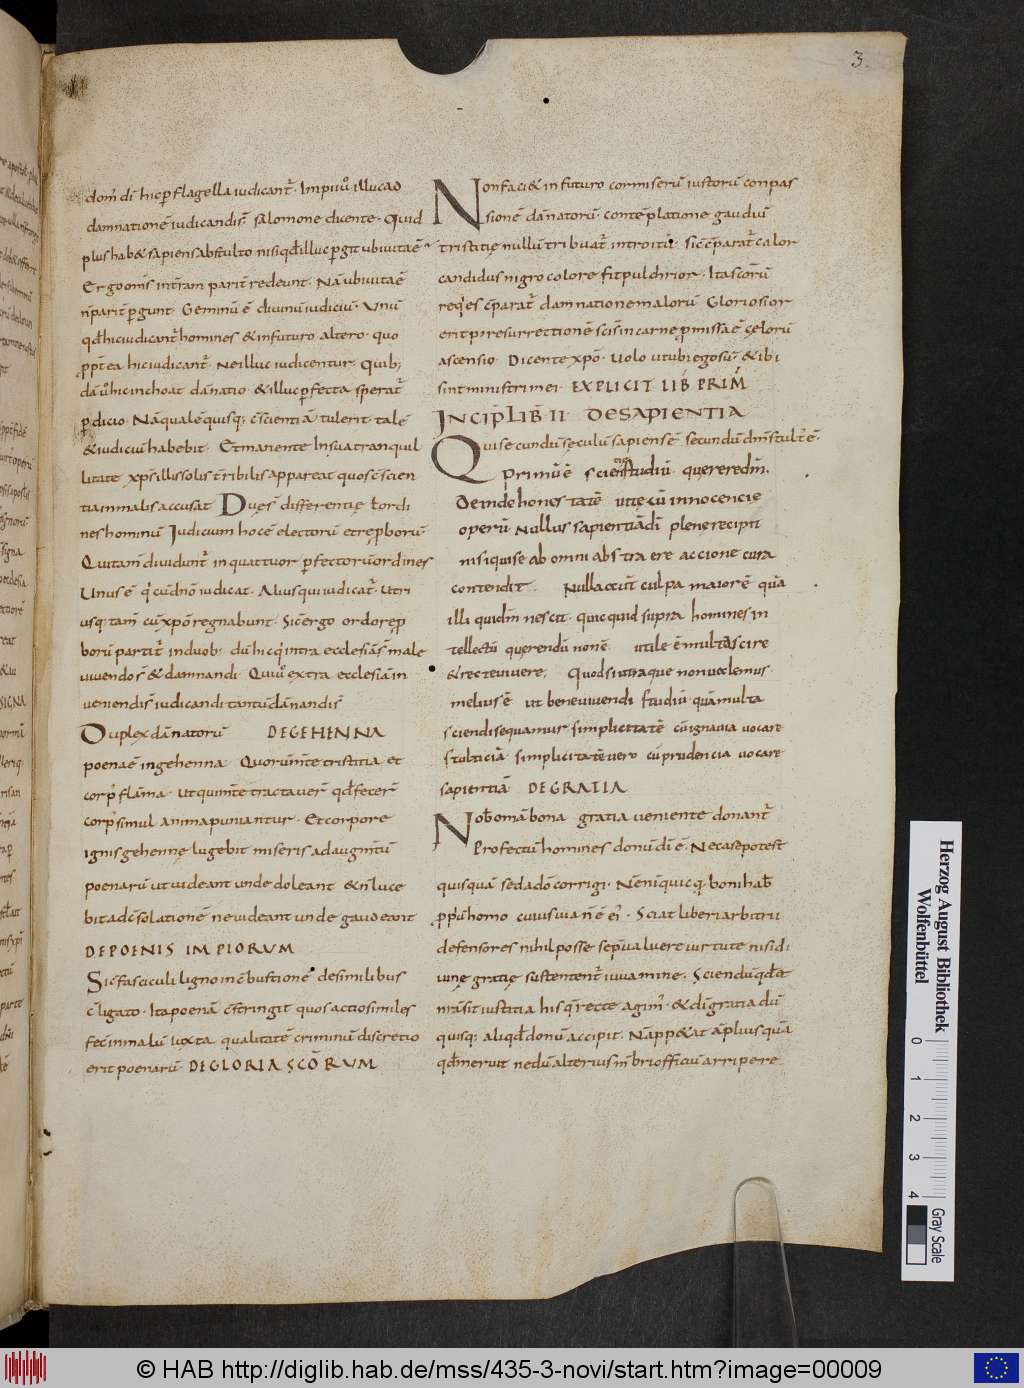 3.
dom̄ di hic ꝑ flagella iudicant̄. Impiuͦ illuc ad
damnationē iudicandis. salomone dicente. Quid
plus hab& sapiens ab stulto nisi qđ illuc ꝑgit ubi uita ē
Ergo om̄s intrām parit̄ redeunt. Nā ubi uita ē
n̄ parit̄ ꝑgunt. Geminū ē diuinū iudiciū. Unū
qđ hic iudicant̄ homines & in futuro altero. quo
ꝓpt̄ea hic iudicant̄. Ne illuc iudicentur. Quib;
dāuͦ hic inchoat dānatio & illuc ꝑfecta sperat̄
ꝑdicio. Nā qualē quisq; c̄scientiā tulerit. talē
& iudiciū habebit. Et manente In sua tranquil
litate xp̄s illis solis t̄ribilis appareat quos c̄scien
tia in malis accusat Duȩ s̄ differentiȩ t̄ ordi
nes hominū Iudicium hoc ē electorū et reꝓborū.
Qui tam̄ diuidunt̄ in quattuor ꝑfectorū ordines
Unus ē q̇ cū dn̄o iudicat. Alius qui iudicat̄. utri
usq; tam̄ cū xp̄o regnabunt. Sic ergo ordo reꝓ
borū partit̄ in duob; dū hi q̇ intra ecclesiā s̄ male
uiuendo s̄ & damnandi. Qui uͦ extra ecclesiā in
ueniendi s̄ iudicandi tantū dānandi s̄
Duplex dānatorū DE GEHENNA
poena ē in gehenna Quorū m̄te tristitia et
corp̄ flāma. ut qui m̄te tractauer̄ qđ fecer̄
corp̄ simul anima puniantur. Et corpore
ignis gehennȩ lugebit miseris ad augm̄tū
poenarū ut uideant unde doleant & n̄ luce
bit ad c̄solationē ne uideant unde gaudeant
DE POENIS IMPIORUM
Sic fasciculi ligno in c̄bustionē de similibus
c̄ligato. Ita poenā c̄stringit quos actio similes
fec̄ in malū iuxta. qualitatē criminū discretio
erit poenarū. DE GLORIA SCŌRUM
Non faci& in futuro cor miserū iustorū conpas
sionē dānatorū. contēplatione gaudiū
tristitiȩ nullū tribuat̄ introitū. Sic c̄parat̄ calor
candidus nigro colore fit pulchrior. Ita scōrū
req̇es c̄parat̄ damnatione malorū Gloriosior
erit p̄ resurrectionē scīs in carne ꝓmissa ē cȩlorū
ascensio. Dicente xpō. Uolo ut ubi ego sū & ibi
sint ministri mei. EXPLICIT LIB PRIM̄
INCIP̄ LIB̄ II DE SAPIENTIA
Qui secundū sȩculū sapiens ē secundū dm̄ stult̄ ē.
Primū ē scientiȩ studiū quererе dm̄.
Deinde honestatē uitȩ cū innocencie
operū Nullus sapientiā di plene recipit
nisi qui se ab omni abstraere accione cura
contendit. Nulla ciut̄ culpa maiorē quā
illi qui dm̄ nescit. quicquid supra homines in
tellectū querendū non ē utile ē multa scire
& recte uiuere; Quod si utraque non uolemus
melius ē ut bene uiuendi studiū quā multa
sciendi sequamur simplicitatē cū ignauia uocare
stulticiā simplicitatē uero cū prudencia uocare
sapientiā DE GRATIA
Nob̄ omā bona gratia ueniente donant̄
Profectū homines donū di ē. Nec a se potest
quisquā sed a dō corrigi. N̄ enī quicq̇ boni hab̄
ꝓp̄ū homo cuius uia n̄ ē ei̇. Sciat liberi arbitrii
defensores nihil posse se p̄ualuere uirtute nisi di
uinȩ gratiȩ sustentent̄ iuuamine. Sciendū qđ et
nr̄a sit iustitia his q̄ recte agim̄. & di gratia dū
quisq; aliqđ donū accipit. N̄ app&at āplius quā
qđ meruit ne dū alterius m̄bri officiū arripere
Herzog August Bibliothek
Wolfenbüttel
0 1 2 3 4
Gray Scale
© HAB http://diglib.hab.de/mss/435-3-novi/start.htm?image=00009